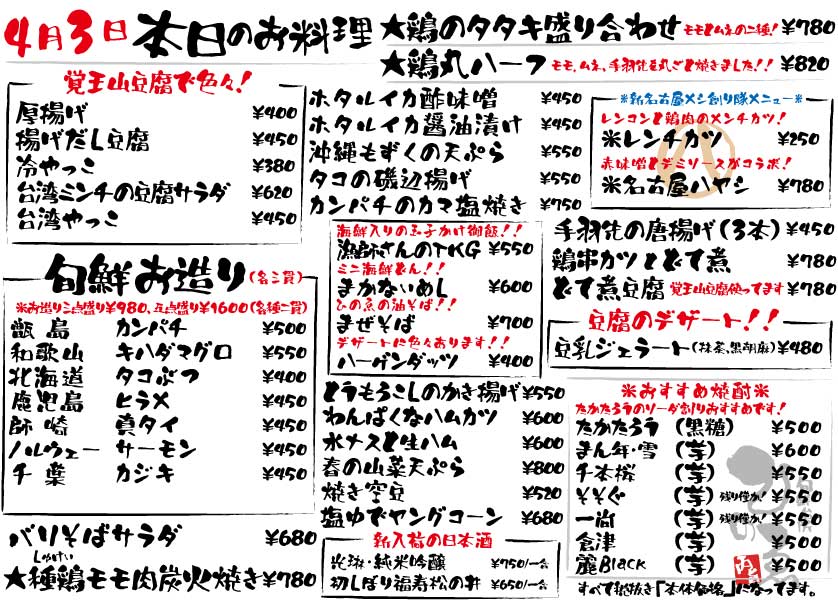 4月3日 本日のお料理
★鶏のタタキ盛り合わせ モモとムネの二種! ¥780
★鶏丸ハーフ モモ、ムネ、手羽先を丸ごと焼きました!! ¥820
覚王山豆腐で色々!
厚揚げ ¥400
揚げだし豆腐 ¥450
冷やっこ ¥380
台湾ミンチの豆腐サラダ ¥620
台湾やっこ ¥450
旬鮮お造り(各三貫)
※お造り三点盛り¥980、五点盛り¥1600(各種二貫)
甑島 カンパチ ¥500
和歌山 キハダマグロ ¥550
北海道 タコぶつ ¥400
鹿児島 ヒラメ ¥450
師崎 真タイ ¥450
ノルウェー サーモン ¥450
千葉 カジキ ¥450
バリそばサラダ ¥680
しゃけい
★種鶏モモ肉炭火焼き ¥780
ホタルイカ酢味噌 ¥450
ホタルイカ醤油漬け ¥450
沖縄もずくの天ぷら ¥550
タコの磯辺揚げ ¥550
カンパチのカマ塩焼き ¥750
海鮮入りの玉子かけ御飯!!
漁師さんのTKG ¥550
ミニ海鮮どん!!
まかないめし ¥600
ひの魚の油そば!!
まぜそば ¥700
デザートに色々あります!!
ハーゲンダッツ ¥400
とうもろこしのかき揚げ ¥550
わんぱくなハムカツ ¥600
水ナスと生ハム ¥600
春の山菜天ぷら ¥800
焼き空豆 ¥520
塩ゆでヤングコーン ¥680
新入荷の日本酒
光琳・純米吟醸 ¥750/一合
初しぼり福寿松の井 ¥650/一合
※新名古屋メシ創り隊メニュー※
レンコンと鶏肉のメンチカツ!
※レンチカツ ¥250
赤味噌とデミソースがコラボ!
※名古屋ハヤシ ¥780
手羽先の唐揚げ(3本) ¥450
鶏串カツとどて煮 ¥780
どて煮豆腐 覚王山豆腐使ってます ¥780
豆腐のデザート!!
豆乳ジェラート(抹茶、黒胡麻) ¥480
※おすすめ焼酎※
たかたろうのソーダ割りおすすめです!
たかたろう (黒糖) ¥500
まん年・雪 (芋) ¥600
千本桜 (芋) ¥550
そそぐ (芋) 残り僅か! ¥550
一尚 (芋) 残り僅か! ¥550
倉津 (芋) ¥500
麗Black (芋) ¥500
すべて税抜き「本体価格」になってます。